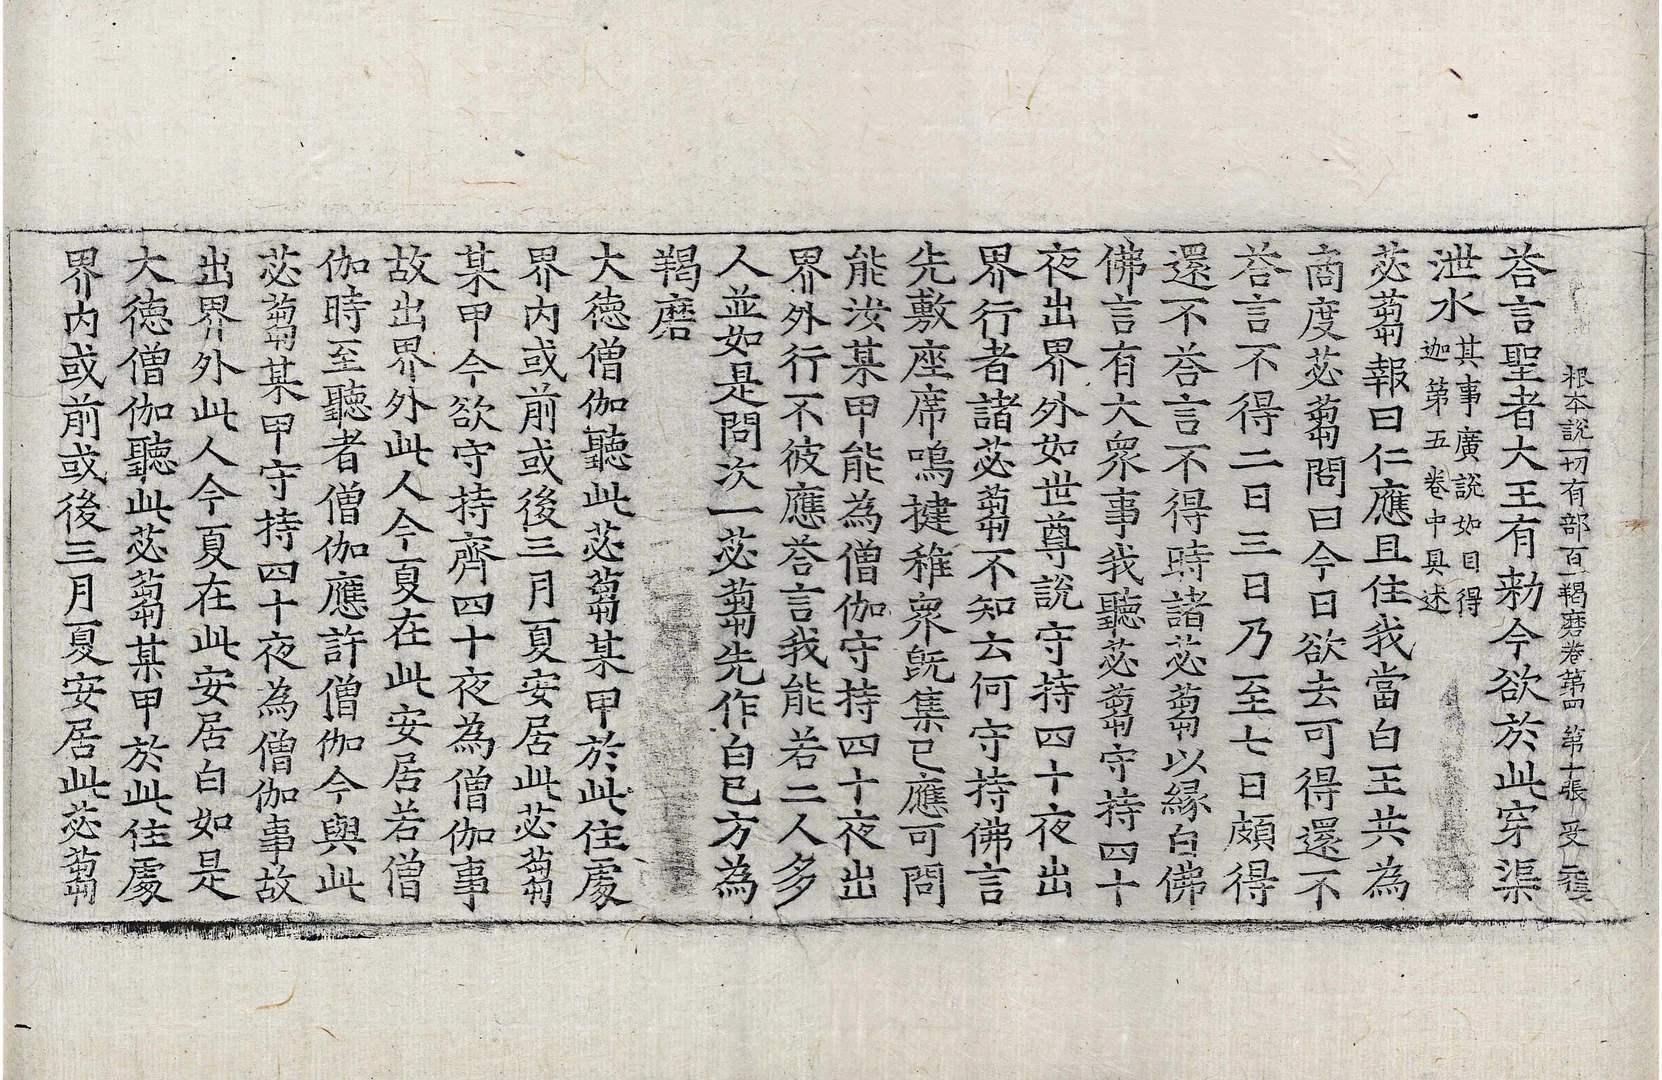 根本說一切有部百一羯磨卷第四 第十張 受
荅言聖者大王有勑今欲於此穿渠
泄水其事廣說如目得
迦第五卷中具述
苾蒭報曰仁應且住我當白王共為
商度苾蒭問曰今日欲去可得還不
荅言不得二日三日乃至七日頗得
還不荅言不得時諸苾蒭以縁白佛
佛言有大衆事我聽苾蒭守持四十
夜出界外如世尊說守持四十夜出
界行者諸苾蒭不知云何守持佛言
先敷座席鳴揵稚衆旣集已應可問
能汝某甲能為僧伽守持四十夜出
界外行不彼應荅言我能若二人多
人並如是問次一苾蒭先作白已方為
羯磨
大德僧伽聽此苾蒭某甲於此住處
界內或前或後三月夏安居此苾蒭
某甲今欲守持齊四十夜為僧伽事
故出界外此人今夏在此安居若僧
伽時至聽者僧伽應許僧伽今與此
苾蒭某甲守持四十夜為僧伽事故
出界外此人今夏在此安居白如是
大德僧伽聽此苾蒭某甲於此住處
界內或前或後三月夏安居此苾蒭